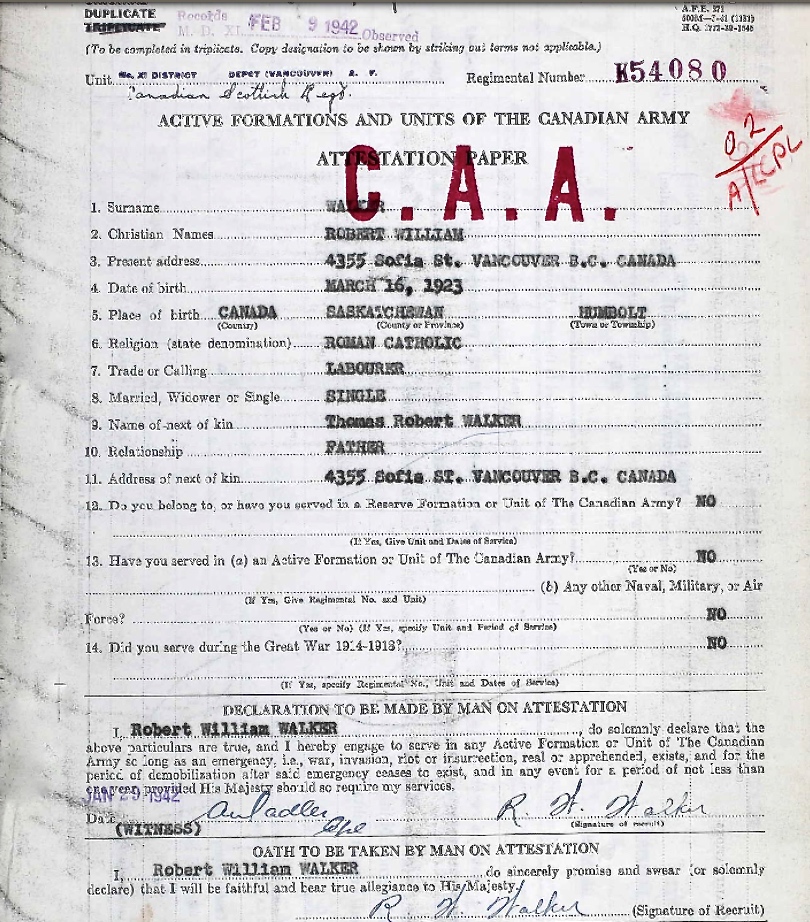 DUPLICATE
TRIPLICATE
Records FEB 9 1942 Observed
M. D. XI
A.F.E. 371
(To be completed in triplicate. Copy designation to be shown by striking out terms not applicable.)
Unit No. XI DISTRICT DEPOT (VANCOUVER) A. F. Regimental Number K54080
Canadian Scottish Regt.
ACTIVE FORMATIONS AND UNITS OF THE CANADIAN ARMY
ATTESTATION PAPER
C.A.A.
1. Surname WALKER
2. Christian Names ROBERT WILLIAM
3. Present address 4355 Sofia St. VANCOUVER B.C. CANADA
4. Date of birth MARCH 16, 1923
5. Place of birth CANADA SASKATCHEWAN HUMBOLT
(Country) (County or Province) (Town or Township)
6. Religion (state denomination) ROMAN CATHOLIC
7. Trade or Calling LABOURER
8. Married, Widower or Single SINGLE
9. Name of next of kin Thomas Robert WALKER
10. Relationship FATHER
11. Address of next of kin 4355 Sofia ST. VANCOUVER B.C. CANADA
12. Do you belong to, or have you served in a Reserve Formation or Unit of The Canadian Army? NO
(If Yes, Give Unit and Dates of Service)
13. Have you served in (a) an Active Formation or Unit of The Canadian Army? NO
(Yes or No)
(b) Any other Naval, Military, or Air
(If Yes, Give Regimental No. and Unit)
Force? NO
(Yes or No) (If Yes, specify Unit and Period of Service)
14. Did you serve during the Great War 1914-1918? NO
(If Yes, specify Regimental No., Unit and Dates of Service)
DECLARATION TO BE MADE BY MAN ON ATTESTATION
I, Robert William WALKER, do solemnly declare that the
above particulars are true, and I hereby engage to serve in any Active Formation or Unit of The Canadian
Army so long as an emergency, i.e., war, invasion, riot or insurrection, real or apprehended, exists, and for the
period of demobilization after said emergency ceases to exist, and in any event for a period of not less than
one year, provided His Majesty should so require my services.
JAN 29 1942
Date R. W. Walker
(WITNESS) (Signature of recruit)
OATH TO BE TAKEN BY MAN ON ATTESTATION
I, Robert William WALKER do sincerely promise and swear (or solemnly
declare) that I will be faithful and bear true allegiance to His Majesty.
R. W. Walker (Signature of Recruit)